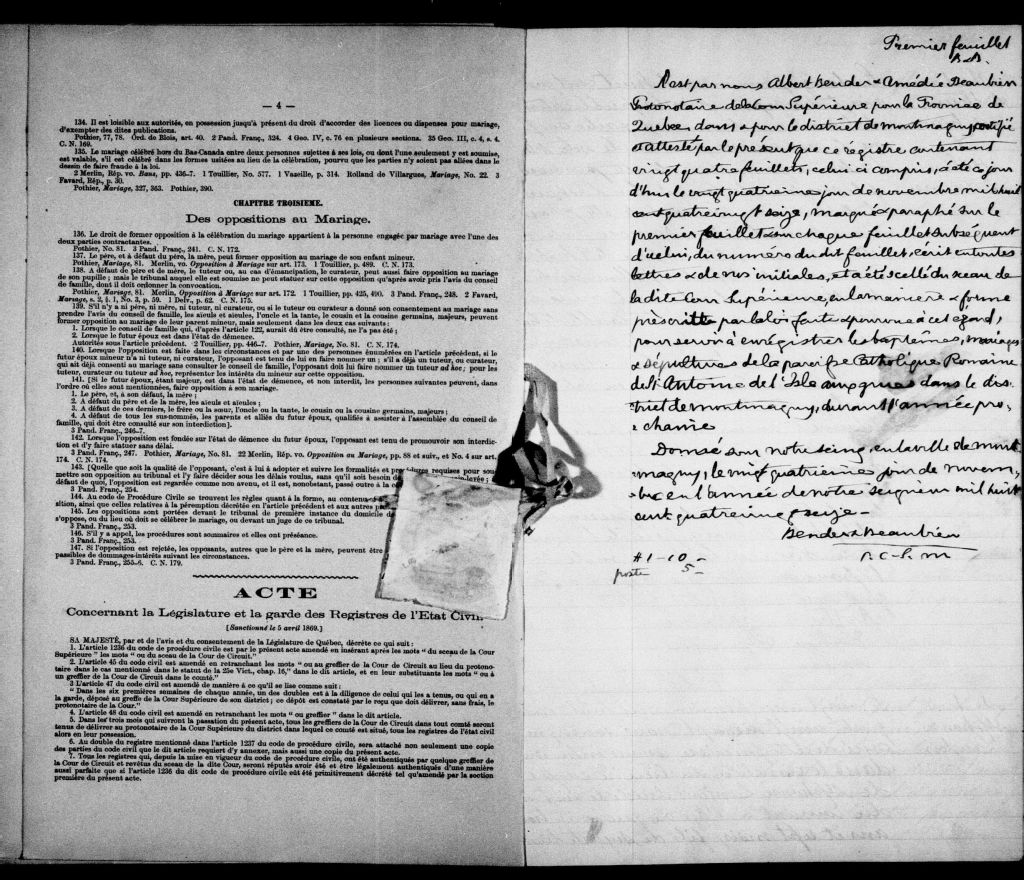 — 4 —
134. Il est loisible aux autorités, en possession jusqu'à présent du droit d'accorder des licences ou dispenses pour mariage,
d'exempter des dites publications.
Pothier, 77, 78. Ord. de Blois, art. 40. 2 Pand. Franç., 324. 4 Geo. IV, c. 76 en plusieurs sections. 35 Geo. III, c. 4, s. 4.
C. N. 169.
135. Le mariage célébré hors du Bas-Canada entre deux personnes sujettes à ses lois, ou dont l'une seulement y est soumise,
est valable, s'il est célébré dans les formes usitées au lieu de la célébration, pourvu que les parties n'y soient pas allées dans le
dessin de faire fraude à la loi.
2 Merlin, Rép. vo. Bans, pp. 436-7. 1 Touillier, No. 577. 1 Vazeille, p. 314. Rolland de Villargues, Mariage, No. 22. 3
Favard, Rép., p. 30.
Pothier, Mariage, 327, 363. Pothier, 390.
CHAPITRE TROISIEME.
Des oppositions au Mariage.
136. Le droit de former opposition à la célébration du mariage appartient à la personne engagée par mariage avec l'une des
deux parties contractantes.
Pothier, No. 81. 3 Pand. Franç., 241. C. N. 172.
137. Le père, et à défaut du père, la mère, peut former opposition au mariage de son enfant mineur.
Pothier, Mariage, 81. Merlin, vo. Opposition à Mariage sur art. 173. 1 Touillier, p. 489. C. N. 173.
138. A défaut de père et de mère, le tuteur ou, au cas d'émancipation, le curateur, peut aussi faire opposition au mariage
de son pupille; mais le tribunal auquel elle est soumise ne peut statuer sur cette opposition qu'après avoir pris l'avis du conseil
de famille, dont il doit ordonner la convocation.
Pothier, Mariage, 81. Merlin, Opposition à Mariage sur art. 172. 1 Touillier, pp. 425, 490. 3 Pand. Franç., 248. 2 Favard,
Mariage, s. 2, § 1, No. 3, p. 59. 1 Delv., p. 62. C. N. 175.
139. S'il n'y a ni père, ni mère, ni tuteur, ni curateur, ou si le tuteur ou curateur a donné son consentement au mariage sans
prendre l'avis du conseil de famille, les aïeuls et aïeules, l'oncle et la tante, le cousin et la cousine germains, majeurs, peuvent
former opposition au mariage de leur parent mineur, mais seulement dans les deux cas suivants:
1. Lorsque le conseil de famille qui, d'après l'article 122, aurait dû être consulté, ne l'a pas été;
2. Lorsque le futur époux est dans l'état de démence.
Autorités sous l'article précédent. 2 Touillier, pp. 446-7. Pothier, Mariage, No. 81. C. N. 174.
140. Lorsque l'opposition est faite dans les circonstances et par une des personnes énumérées en l'article précédent, si le
futur époux mineur n'a ni tuteur, ni curateur, l'opposant est tenu de lui en faire nommer un; s'il a déjà un tuteur, ou curateur,
qui ait déjà consenti au mariage sans consulter le conseil de famille, l'opposant doit lui faire nommer un tuteur ad hoc; pour les
tuteur, curateur ou tuteur ad hoc, représenter les intérêts du mineur sur cette opposition.
141. [Si le futur époux, étant majeur, est dans l'état de démence, et non interdit, les personnes suivantes peuvent, dans
l'ordre où elles sont mentionnées, faire opposition à son mariage.
1. Le père, et, à son défaut, la mère;
2. A défaut du père et de la mère, les aïeuls et aïeules;
3. A défaut de ces derniers, le frère ou la sœur, l'oncle ou la tante, le cousin ou la cousine germains, majeurs;
4. A défaut de tous les sus-nommés, les parents et alliés du futur époux, qualifiés à assister à l'assemblée du conseil de
famille, qui doit être consulté sur son interdiction].
3 Pand. Franç., 246-7.
142. Lorsque l'opposition est fondée sur l'état de démence du futur époux, l'opposant est tenu de promouvoir son interdic-
tion et d'y faire statuer sans délai.
3 Pand. Franç., 247. Pothier, Mariage, No. 81. 22 Merlin, Rép. vo. Opposition au Mariage, pp. 88 et suiv., et No. 4 sur art.
174. C. N. 174.
143. [Quelle que soit la qualité de l'opposant, c'est à lui à adopter et suivre les formalités et procédures requises pour sou-
mettre son opposition au tribunal et l'y faire décider sous les délais voulus, sans qu'il soit besoin de
défaut de quoi, l'opposition est regardée comme non avenu, et il est, nonobstant, passé outre à la
3 Pand. Franç., 254.
144. Au code de Procédure Civile se trouvent les règles quant à la forme, au contenu
sition, ainsi que celles relatives à la péremption décrétée en l'article précédent et aux autres
145. Les oppositions sont portées devant le tribunal de première instance du domicile
s'oppose, ou du lieu où doit se célébrer le mariage, ou devant un juge de ce tribunal.
3 Pand. Franç., 253.
146. S'il y a appel, les procédures sont sommaires et elles ont préséance.
3 Pand. Franç., 253.
147. Si l'opposition est rejetée, les opposants, autres que le père et la mère, peuvent être
passibles de dommages-intérêts suivant les circonstances.
3 Pand. Franç., 255-6. C. N. 179.
ACTE
Concernant la Législature et la garde des Registres de l'Etat Civil
[Sanctionné le 5 avril 1869.]
SA MAJESTÉ, par et de l'avis et du consentement de la Législature de Québec, décrète ce qui suit:
1. L'article 1236 du code de procédure civile est par le présent acte amendé en insérant après les mots "du sceau de la Cour
Supérieure" les mots "ou du sceau de la Cour de Circuit."
2. L'article 45 du code civil est amendé en retranchant les mots "ou au greffier de la Cour de Circuit au lieu du protono-
taire dans le cas mentionné dans le statut de la 25e Vict., chap. 16," dans le dit article, et en leur substituants les mots "ou à
un greffier de la Cour de Circuit dans le comté."
3 L'article 47 du code civil est amendé de manière à ce qu'il se lise comme suit:
"Dans les six premières semaines de chaque année, un des doubles est à la diligence de celui qui les a tenus, ou qui en a
la garde, déposé au greffe de la Cour Supérieure de son district; ce dépôt est constaté par le reçu que doit délivrer, sans frais, le
protonotaire de la Cour."
4. L'article 48 du code civil est amendé en retranchant les mots "ou greffier" dans le dit article.
5. Dans les trois mois qui suivront la passation du présent acte, tous les greffiers de la Cour de Circuit dans tout comté seront
tenus de délivrer au protonotaire de la Cour Supérieure du district dans lequel ce comté est situé, tous les registres de l'état civil
alors en leur possession.
6. Au double du registre mentionné dans l'article 1237 du code de procédure civile, sera attaché non seulement une copie
des parties du code civil que le dit article requiert d'y annexer, mais aussi une copie du présent acte.
7. Tous les registres qui, depuis la mise en vigueur du code de procédure civile, ont été authentiqués par quelque greffier de
la Cour de Circuit et revêtus du sceau de la dite Cour, seront réputés avoir été et être légalement authentiqués d'une manière
aussi parfaite que si l'article 1236 du dit code de procédure civile eût été primitivement décrété tel qu'amendé par la section
première du présent acte.
Premier feuillet
B. & B.
Il est par nous Albert Bender & Amédée Beaubien
Protonotaire de la Cour Supérieure pour la Province de
Quebec, dans & pour le district de Montmagny certifié
et attesté par le present que ce registre contenant
vingt quatre feuillets, celui ci compris, a été ce jour
d'hui le vingt quatrieme jour de novembre mil huit
cent quatrevingt seize, marqué & paraphé sur le
premier feuillet & sur chaque feuillet subséquent
d'icelui, du numéro du dit feuillet, écrit en toutes
lettres & de nos initiales, et a été scellé du sceau de
la dite Cour Supérieure, en la manière & forme
préscritte par la loi faite & pourvue à cet égard,
pour servir à enregistrer les baptêmes, mariages
& sépultures de la paroisse Catholique Romaine
de St Antoine de l'Isle aux grues dans le dis-
trict de Montmagny, durant l'année pro-
chaine
Donné sous notre seing, en la ville de Mont
magny, le vingt quatrieme jour de novem-
bre en l'année de notre seigneur mil huit
cent quatrevingt seize-
Bender & Beaubien
P. C. S. M
#1-10-
poste 5-